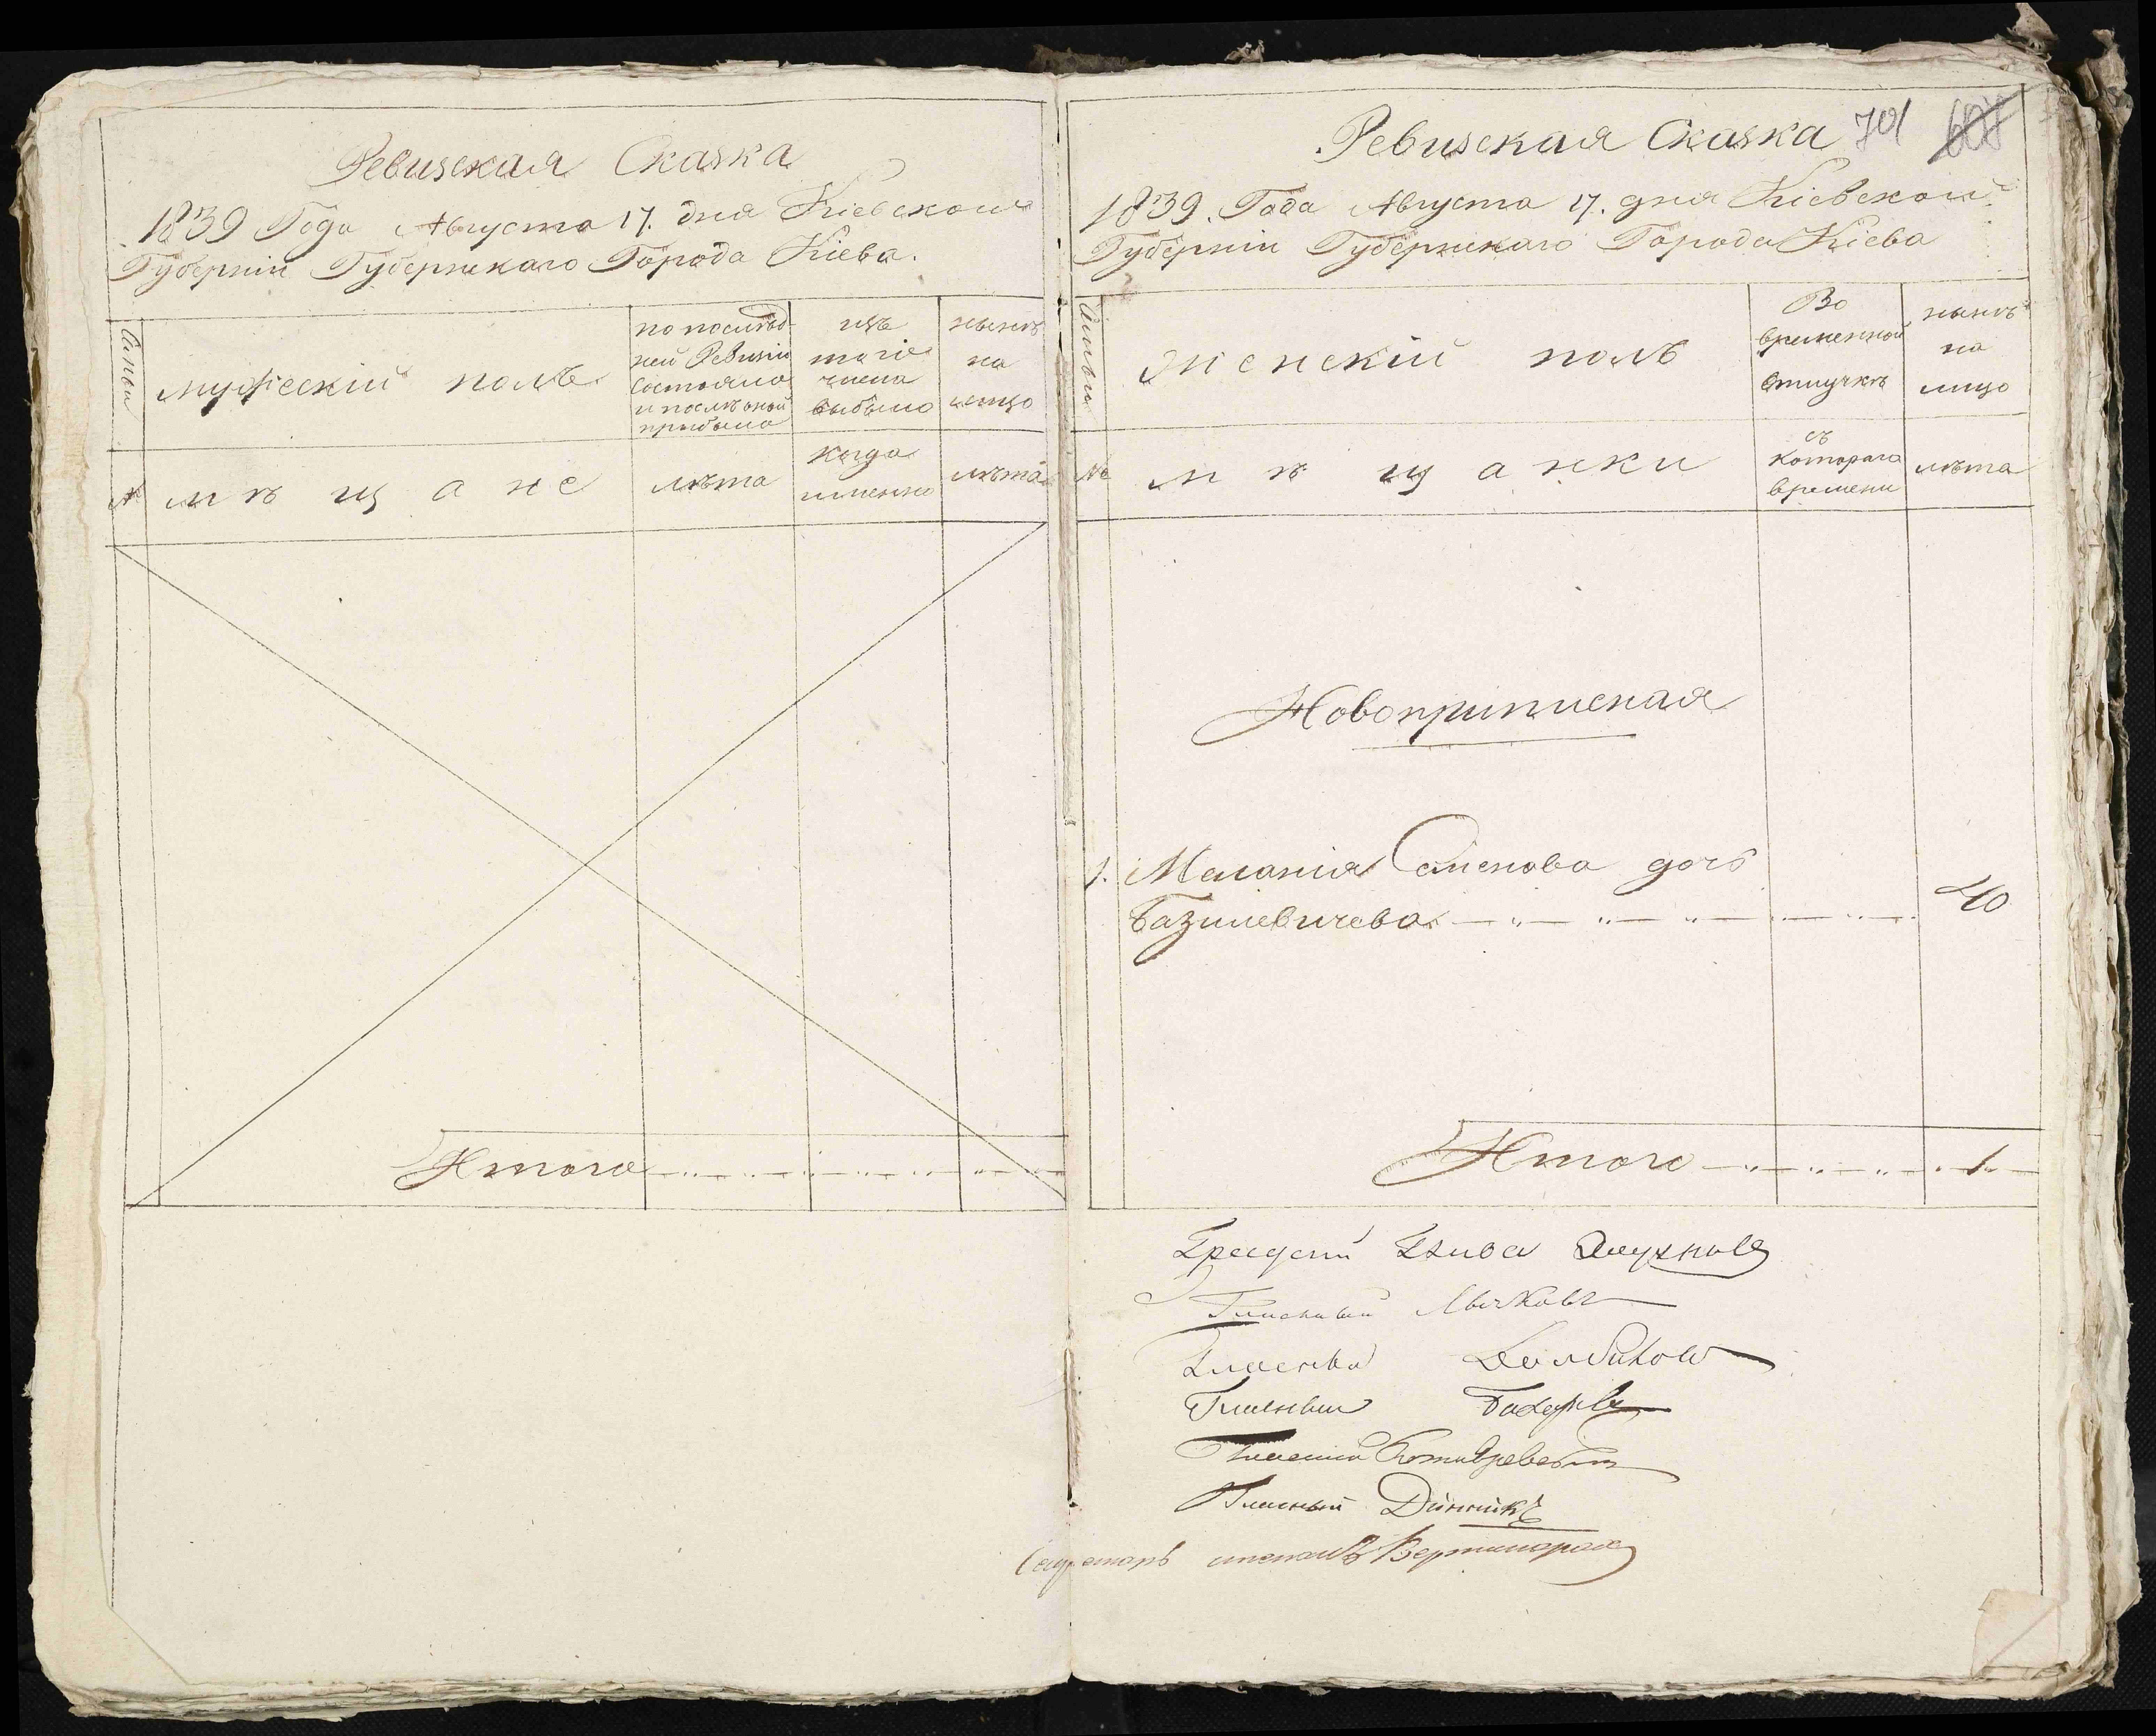 Ревизская Сказка
1839 Года Августа 17. дня Кіевской
Губерніи Губернскаго Города Кіева.
Семьи
мужескій полъ
по послѣд-
ней Ревизіи
состояло
и послѣ оной
прибыло
изъ
того
числа
выбыло
нынѣ
на
лицо
№
мѣщане
лѣта
когда
именно
лѣта
Итого
Ревизская Сказка 701 607
1839. Года Августа 17. дня Кіевской
Губерніи Губернскаго Города Кіева
Семьи
женскій полъ
Во
временной
отлучкѣ
нынѣ
на
лицо
№
мѣщанки
съ
котораго
времени
лѣта
Новоприписная
1. Меланія Семенова дочь
Базилевичева 40
Итого 1
Градскій Глава
Гласный Лычковъ
Гласный
Гласный
Гласный Котляревскій
Гласный Динникъ
Секретарь